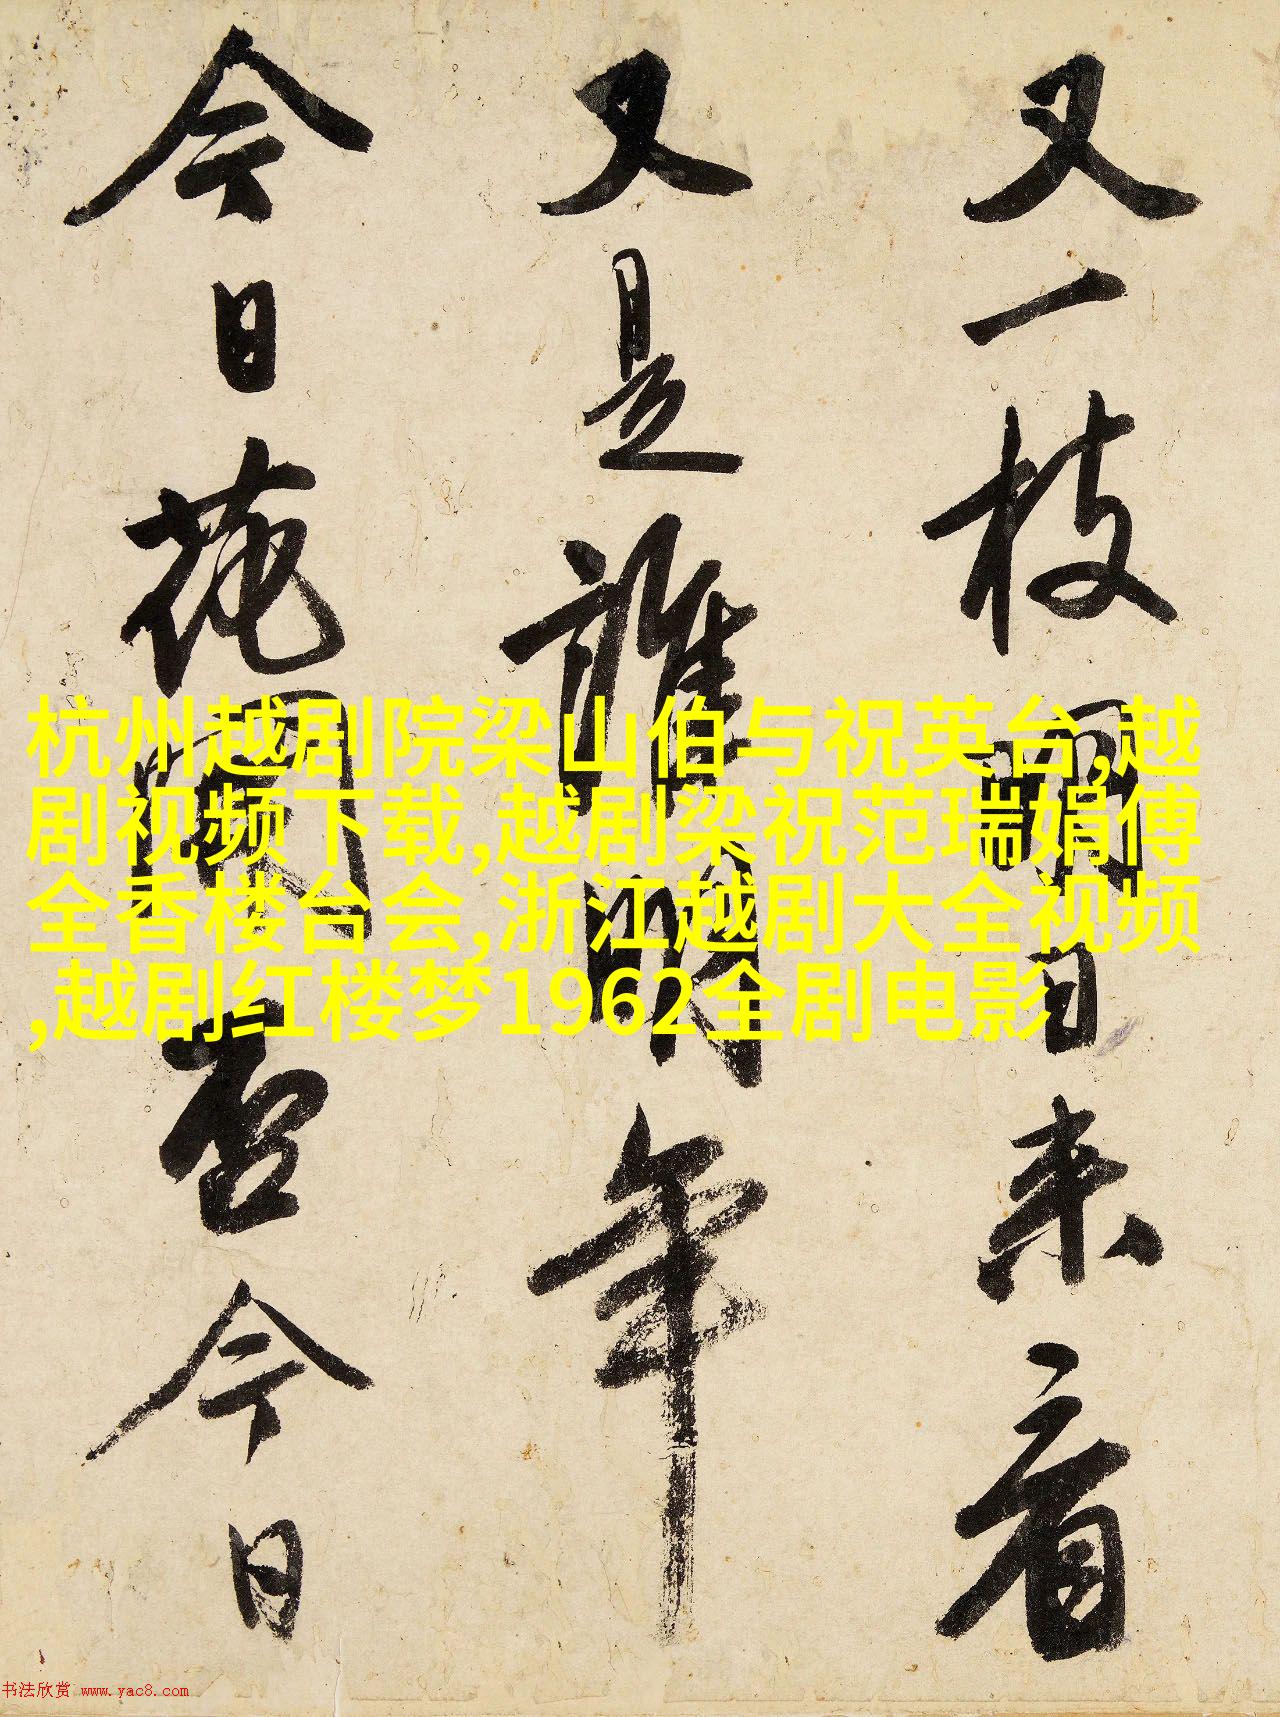 又一枝日来看
又是誰明年
今日花開否今日
杭州越剧院梁山伯与祝英台,越
剧视频下载,越剧梁祝范瑞娟傅
全香楼台会,浙江越剧大全视频
,越剧红楼梦1962全剧电影
书法欣赏 www.yac8.com